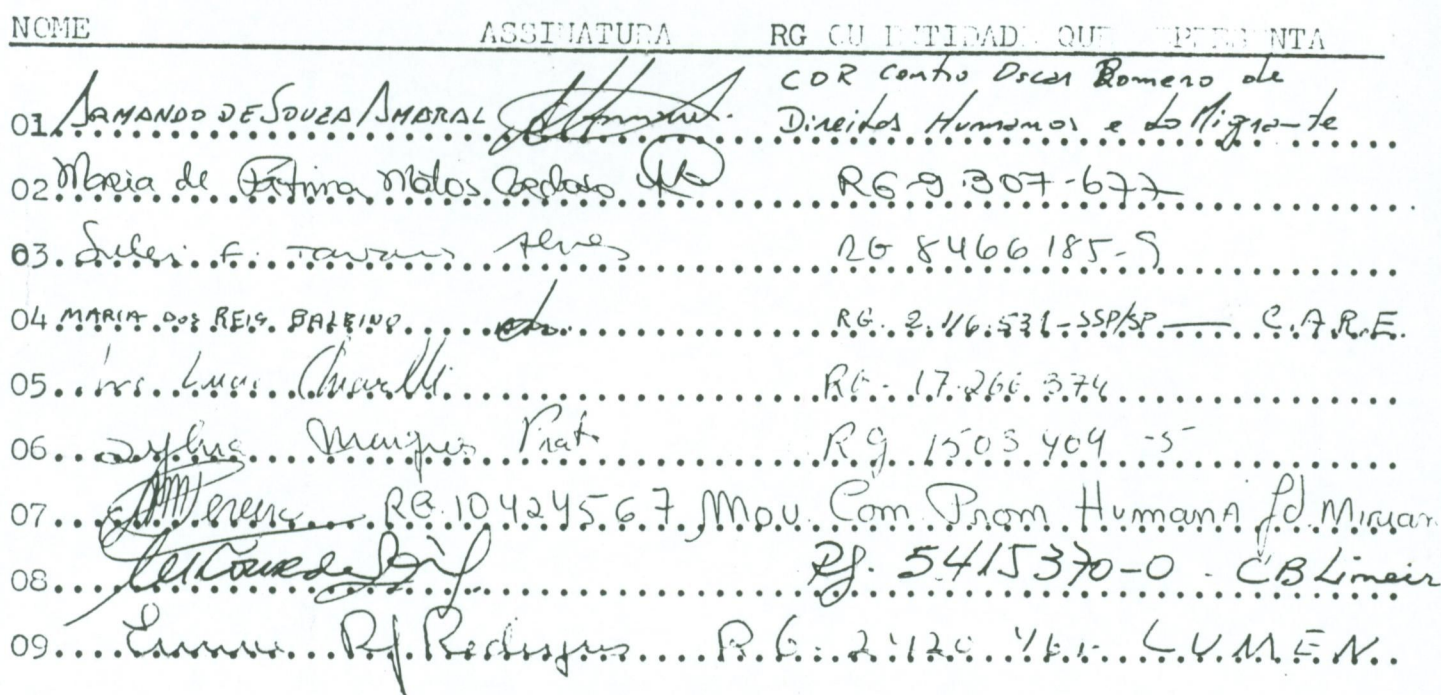 NOME ASSINATURA RG OU ENTIDADE QUE REPRESENTA
COR Centro Oscar Romero de
01 ARMANDO DE SOUZA AMARAL Direitos Humanos e do Migrante
02 Maria de Fátima Matos Cardoso RG 9.307-677
03. Sueli F. Tavares Alves RG 8466185-9
04 MARIA DOS REIS BALBINO RG. 2.116.531-SSP/SP — C.A.R.E.
05 Chiarelli RG. 17.266.374
06 Marques Prat RG 1503404-5
07 Pereira RG.10424567 Mov. Com Prom Humana Jd. Mirian
08 Rg. 5415370-0 - CB Limeir
09 Rodrigues R.G. L.U.M.E.N.